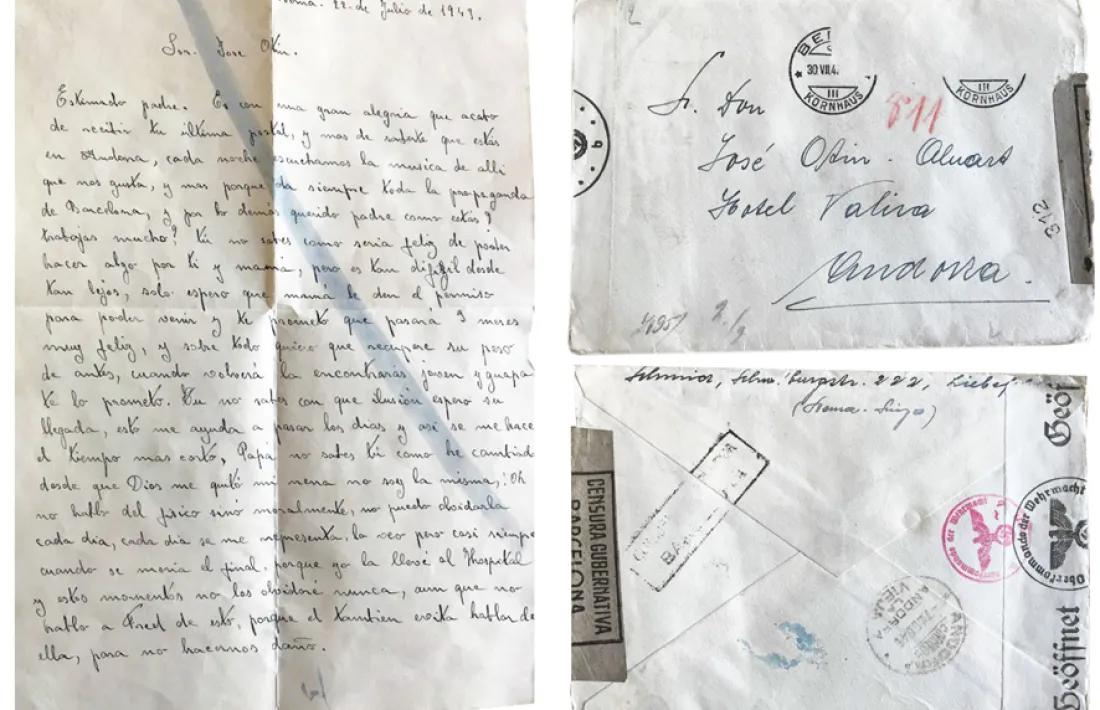 22 de Julio de 1943.
Snr. Jose Otin.
Estimado padre. Es con una gran alegria que acabo
de recibir tu última postal, y mas de saberte que estás
en Andorra, cada noche escuchamos la musica de alli
que nos gusta, y mas porque da siempre toda la propaganda
de Barcelona, y por lo demás querido padre como estás?
trabajas mucho? Tú no sabes como seria feliz de poder
hacer algo por ti y mamá, pero es tan difícil desde
tan lejos, solo espero que mamá le den el permiso
para poder venir y te prometo que pasará 3 meses
muy feliz, y sobre todo quiero que recupere su peso
de antes, cuando volverá la encontrarás joven y guapa
te lo prometo. Tu no sabes con que ilusión espero su
llegada, esto me ayuda a pasar los dias y asi se me hace
el tiempo mas corto, Papá no sabes tú como he cambiado
desde que Dios me quitó mi nena no soy la misma, ¡Oh
no hablo del fisico sinó moralmente, no puedo olvidarla
cada dia, cada dia se me representa, la veo pero casi siempre
cuando se moria al final, porque yo la llevé al Hospital
y estos momentos no los olvidaré nunca, aun que no
hablo a Fred de esto, porque el tambien evita hablar de
ella, para no hacernos daño.
30 VII 4.
III
KORNHAUS
III
KORNHAUS
811
Sr. Don
José Otin - Aluart
Hotel Valira
Andorra.
312
Schmid, 222, Liebef
Geöf
CENSURA GUBERNATIVA
BARCELONA
Oberkommando der Wehrmacht
Oberkommando der Wehrmacht
ANDORRA
LA
VIEJA
Geöffnet